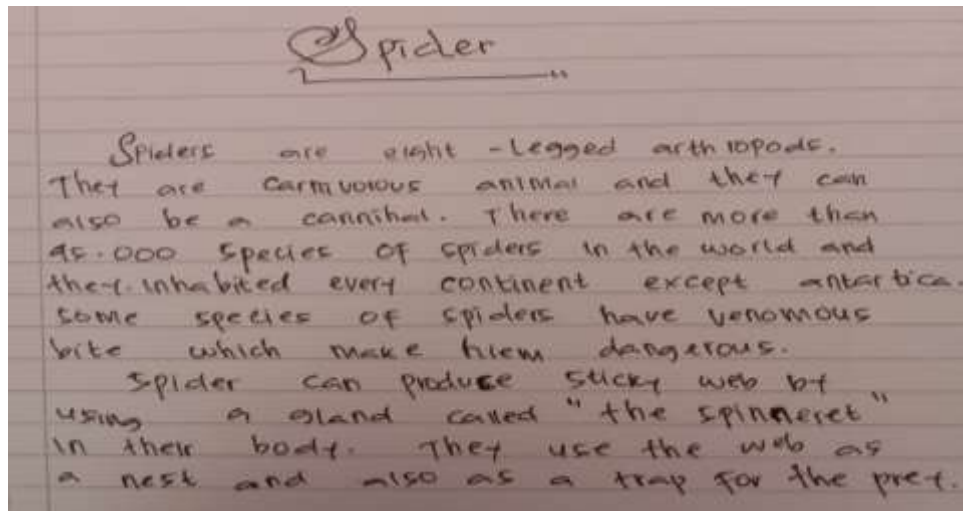 Spider
Spiders are eight - Legged arthropods.
They are carnivorous animal and they can
also be a cannibal. There are more than
45.000 species of spiders in the world and
they inhabited every continent except antartica.
some species of spiders have venomous
bite which make them dangerous.
Spider can produce sticky web by
using a gland called "the spinneret"
in their body. They use the web as
a nest and also as a trap for the prey.